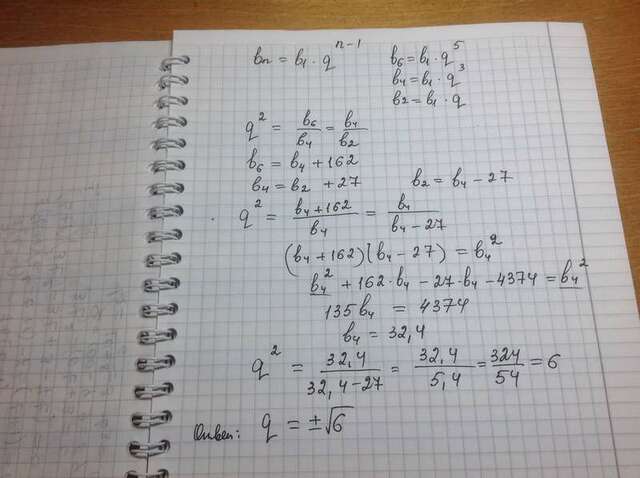 bn = b1 · q^(n-1)   b6 = b1 · q^5
b4 = b1 · q^3
b2 = b1 · q
q^2 = b6/b4 = b4/b2
b6 = b4 + 162
b4 = b2 + 27   b2 = b4 - 27
q^2 = (b4 + 162)/b4 = b4/(b4 - 27)
(b4 + 162)(b4 - 27) = b4^2
b4^2 + 162 · b4 - 27 · b4 - 4374 = b4^2
135b4 = 4374
b4 = 32,4
q^2 = 32,4/(32,4-27) = 32,4/5,4 = 324/54 = 6
Ответ: q = ±√6